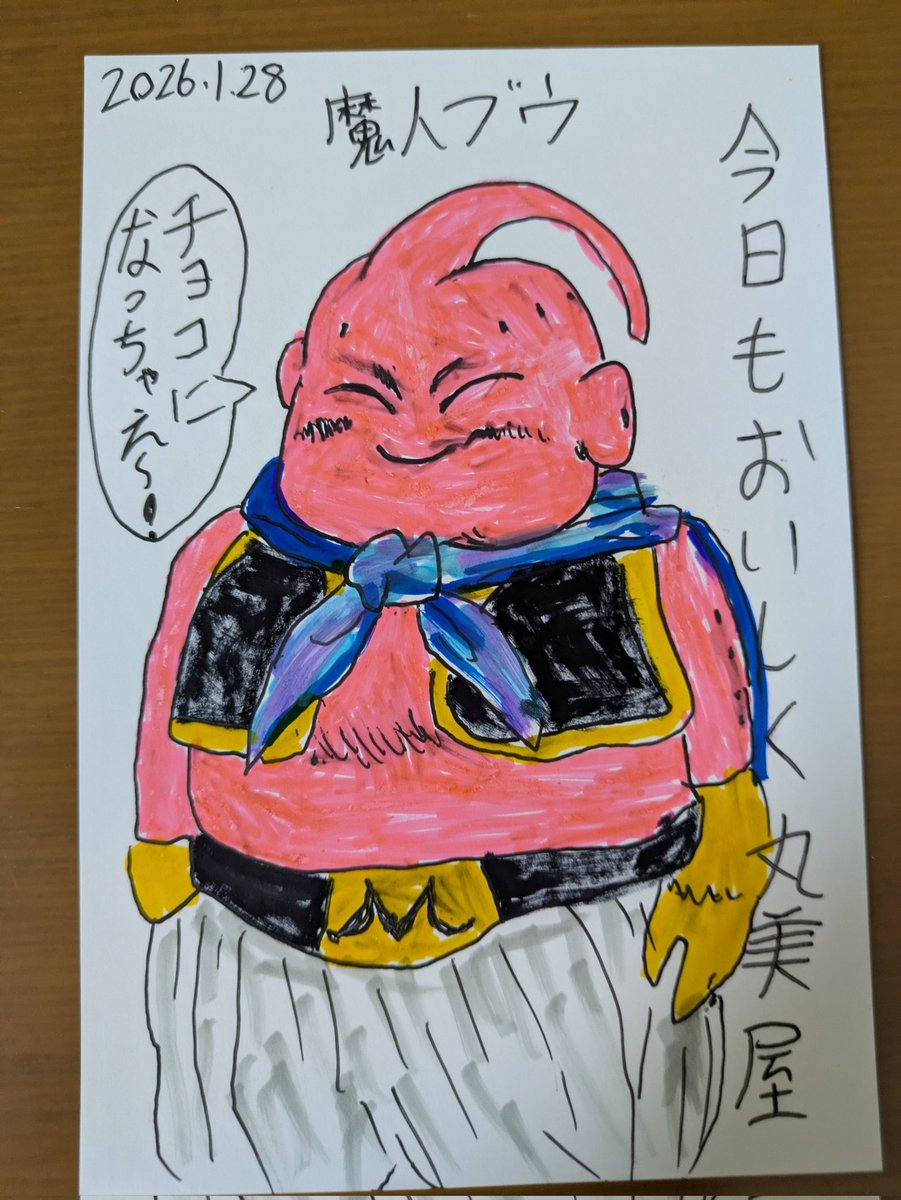 2026.1.28
魔人ブウ
今日もおいしく丸美屋
チョコに
なっちゃえ〜!
M